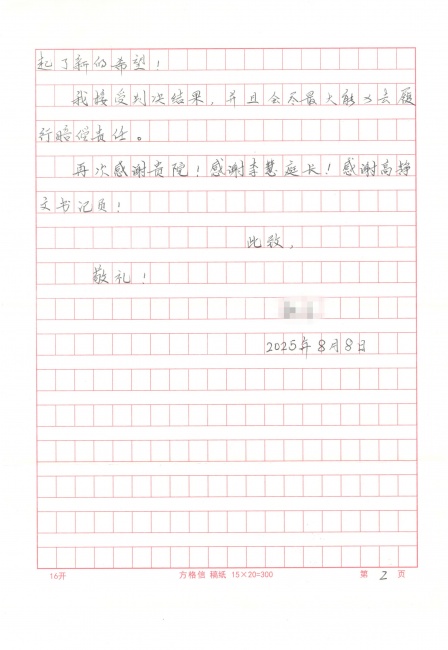 起了新的希望！
我接受判决结果，并且会尽最大能力去履
行赔偿责任。
再次感谢贵院！感谢李慧庭长！感谢高静
文书记员！
此致，
敬礼！
2025年8月8日
16开 方格信 稿纸 15×20=300 第 2 页